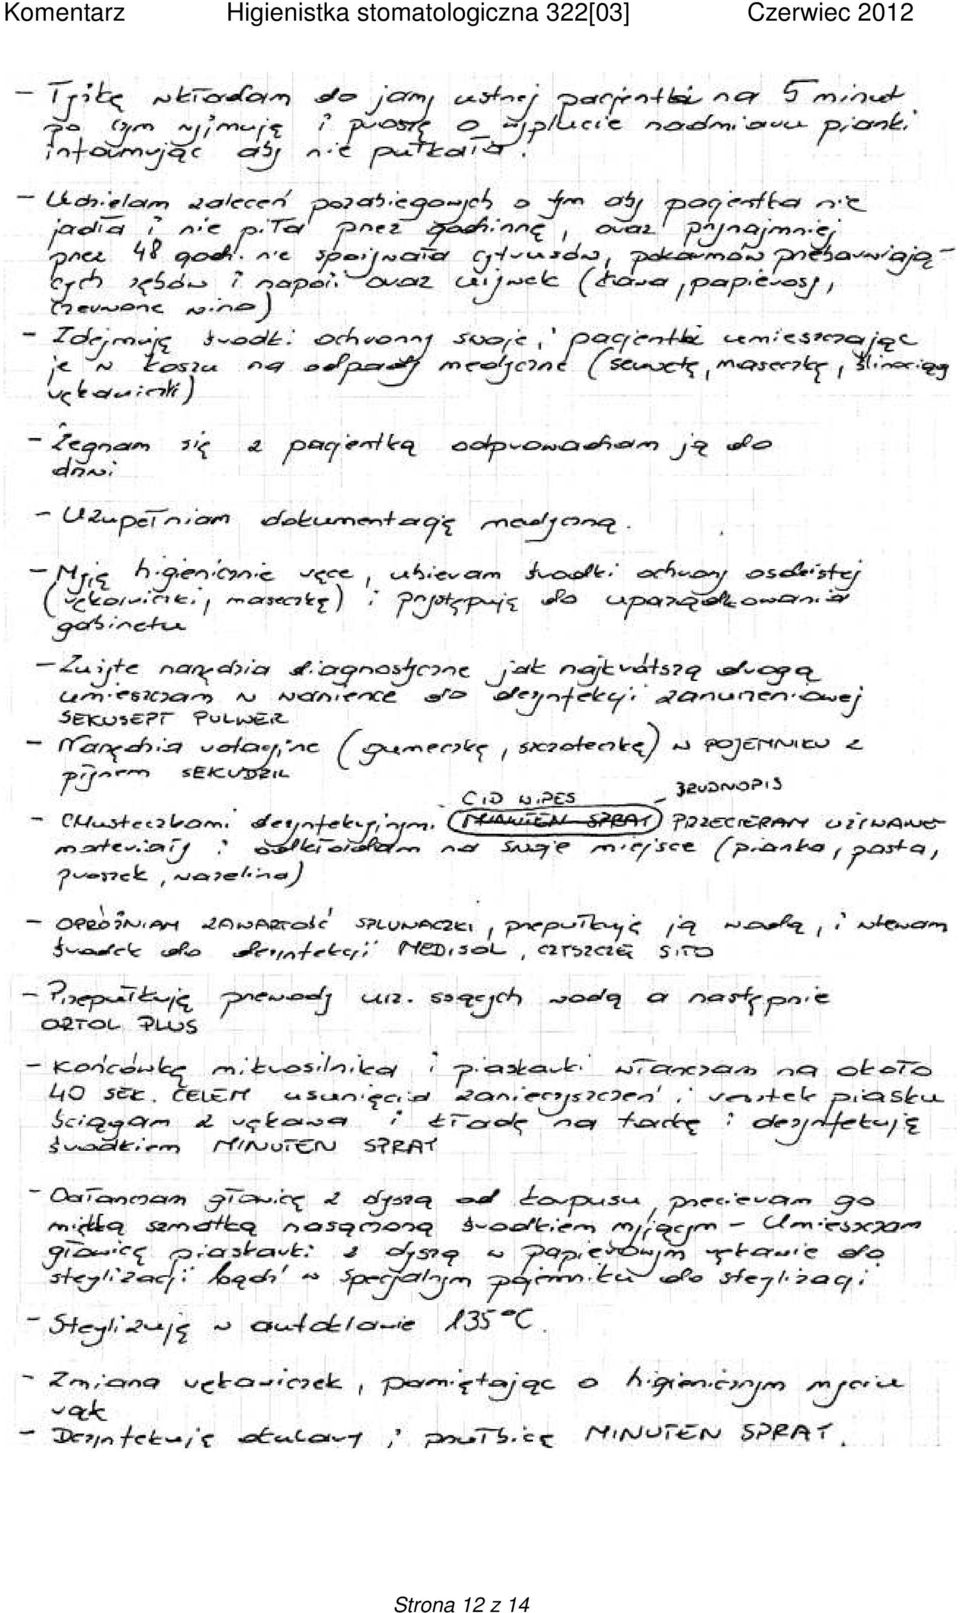 Komentarz Higienistka stomatologiczna 322[03] Czerwiec 2012
- Łyżkę wkładam do jamy ustnej pacjentki na 5 minut
po czym wyjmuję i proszę o wyplucie nadmiaru pianki
informując aby nie płukała.
- Udzielam zaleceń pozabiegowych o tym aby pacjentka nie
jadła i nie piła przez godzinę, oraz przynajmniej
przez 48 godz. nie spożywała cytrusów, pokarmów przebarwiają-
cych zębów i napoi oraz używek (kawa, papierosy,
czerwone wino)
- Zdejmuję środki ochronny swoje i pacjentki umieszczając
je w koszu na odpady medyczne (serwetę, maseczkę, ślinociąg
rękawiczki)
- Żegnam się z pacjentką odprowadzam ją do
drzwi
- Uzupełniam dokumentację medyczną.
- Myję higienicznie ręce, ubieram środki ochrony osobistej
(rękawiczki, maseczkę) i przystępuję do uporządkowania
gabinetu
- Zużyte narzędzia diagnostyczne jak najkrótszą drogą
umieszczam w wanience do dezynfekcji zanurzeniowej
SEKUSEPT PULWER
- Narzędzia rotacyjne (gumeczkę, szczoteczkę) w POJEMNIKU z
płynem SEKUDRIL
CID WIPES - BRUDNOPIS
- CHusteczkami dezynfekcyjnymi (MINUTEN SPRAY) PRZECIERAM UŻYWANE
materiały i odkładam na swoje miejsce (pianka, pasta,
proszek, wazelina)
- OPRÓŻNIAM ZAWARTOŚĆ SPLUWACZKI, przepłukuję ją wodą, i wlewam
środek do dezynfekcji MEDISOL, CZYSZCZĘ SITO
- Przepłukuję przewody urz. ssących wodą a następnie
OROTOL PLUS
- Końcówkę mikrosilnika i piaskarki włanczam na około
40 SEK. CELEM usunięcia zanieczyszczeń i resztek piasku
ściągam z rękawa i kładę na tackę i dezynfekuję
środkiem MINUTEN SPRAY
- Odłanczam głowicę z dyszą od korpusu, przecieram go
miękką szmatką nasączoną środkiem myjącym - Umieszczam
głowicę piaskarki z dyszą w papierowym rękawie do
sterylizacji bądź w specjalnym pojemniku do sterylizacji
- Sterylizuję w autoklawie 135°C.
- Zmiana rękawiczek, pamiętając o higienicznym myciu
rąk
- Dezynfekuję okulary i przyłbicę MINUTEN SPRAY.
Strona 12 z 14